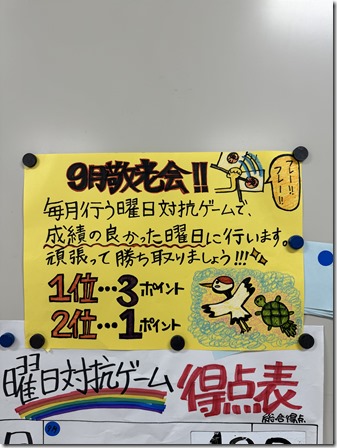 9月敬老会!!
フレー!!
フレー!!
毎月行う曜日対抗ゲームで、
成績の良かった曜日に行います。
頑張って勝ち取りましょう!!!
1位…3ポイント
2位…1ポイント
曜日対抗ゲーム 得点表
総合得点